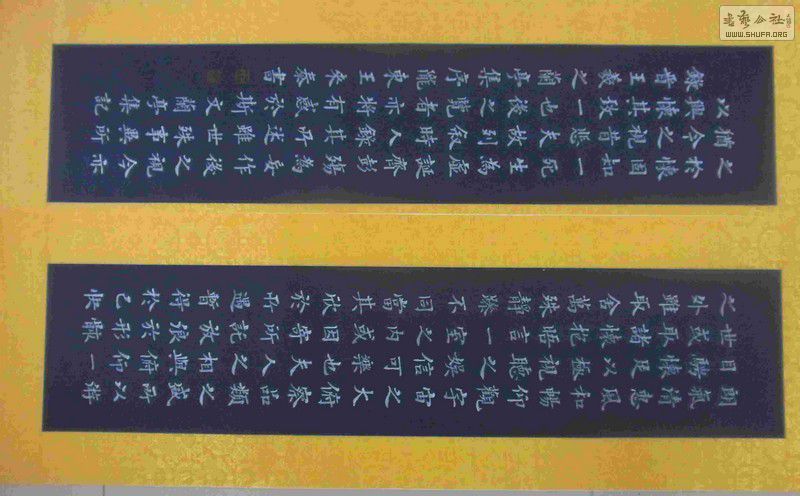 之於懷固知一死生為虛誕齊彭殤為妄作後之視今亦
猶今之視昔悲夫故列敘時人錄其所述雖世殊事異所
以興懷其致一也後之覽者亦將有感於斯文蘭亭集記
錄晉王羲之蘭亭集序
朗氣清惠風和暢仰觀宇宙之大俯察品類之盛所以遊
目騁懷足以極視聽之娛信可樂也夫人之相與俯仰一
世或取諸懷抱晤言一室之内或因寄所託放浪形骸
之外雖取舍萬殊靜躁不同當其欣於所遇暫得於己快
書藝公社
WWW.SHUFA.ORG